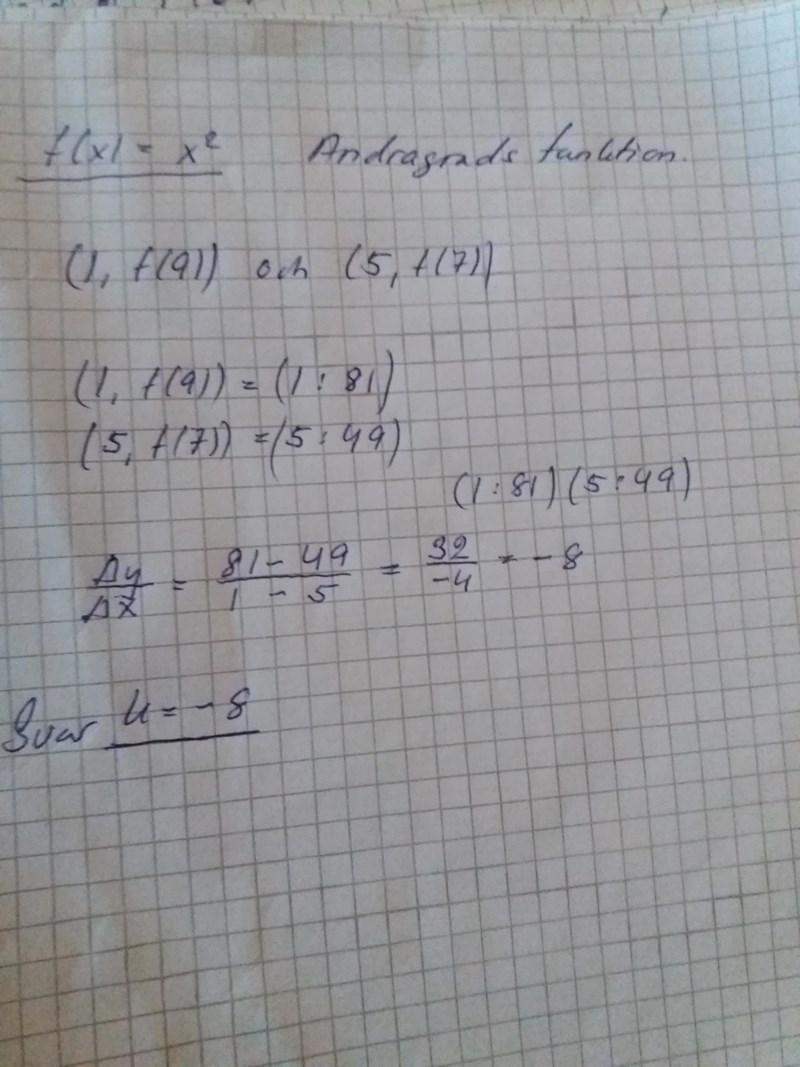 f(x) = x² Andragrads funktion.
(1, f(9)) och (5, f(7))
(1, f(9)) = (1 : 81)
(5, f(7)) = (5 : 49)
(1 : 81) (5 : 49)
Δy/Δx = 81 - 49/1 - 5 = 32/-4 = - 8
Svar k = - 8